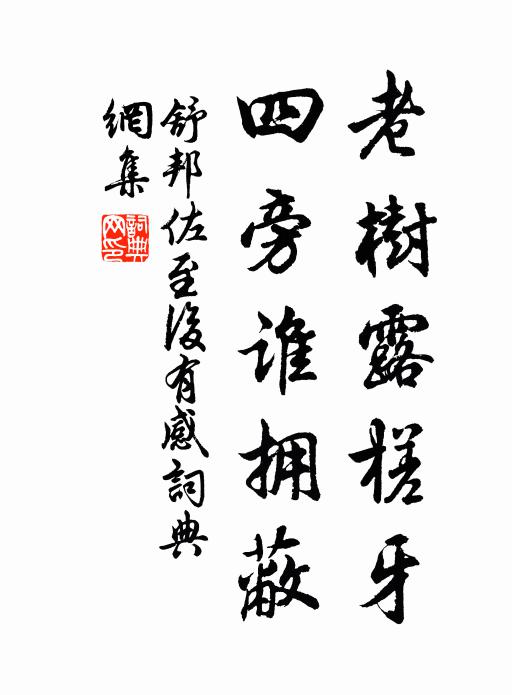 老樹露槎牙
四旁誰拥蔽
舒邦佐至後有感詞典
網集
詞典
网印